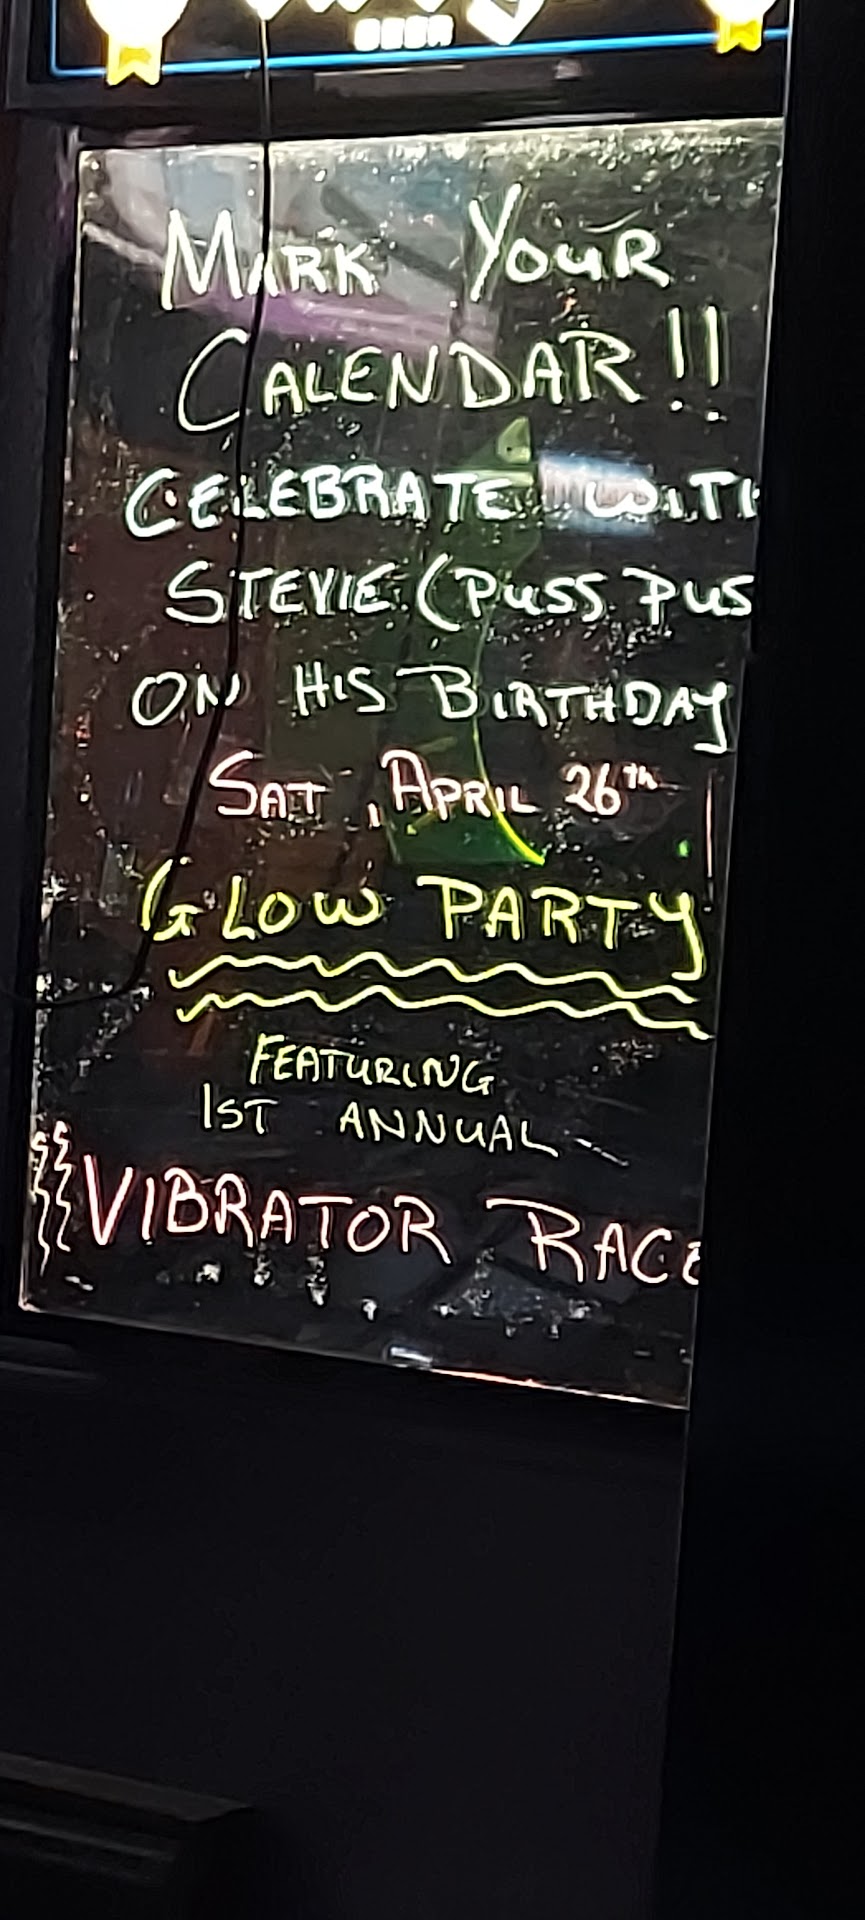 BEER
MARK YOUR
CALENDAR!!
CELEBRATE WITH
STEVIE (PUSS PUS
ON HIS BIRTHDAY
SAT, APRIL 26th
GLOW PARTY
FEATURING
1ST ANNUAL
VIBRATOR RACE